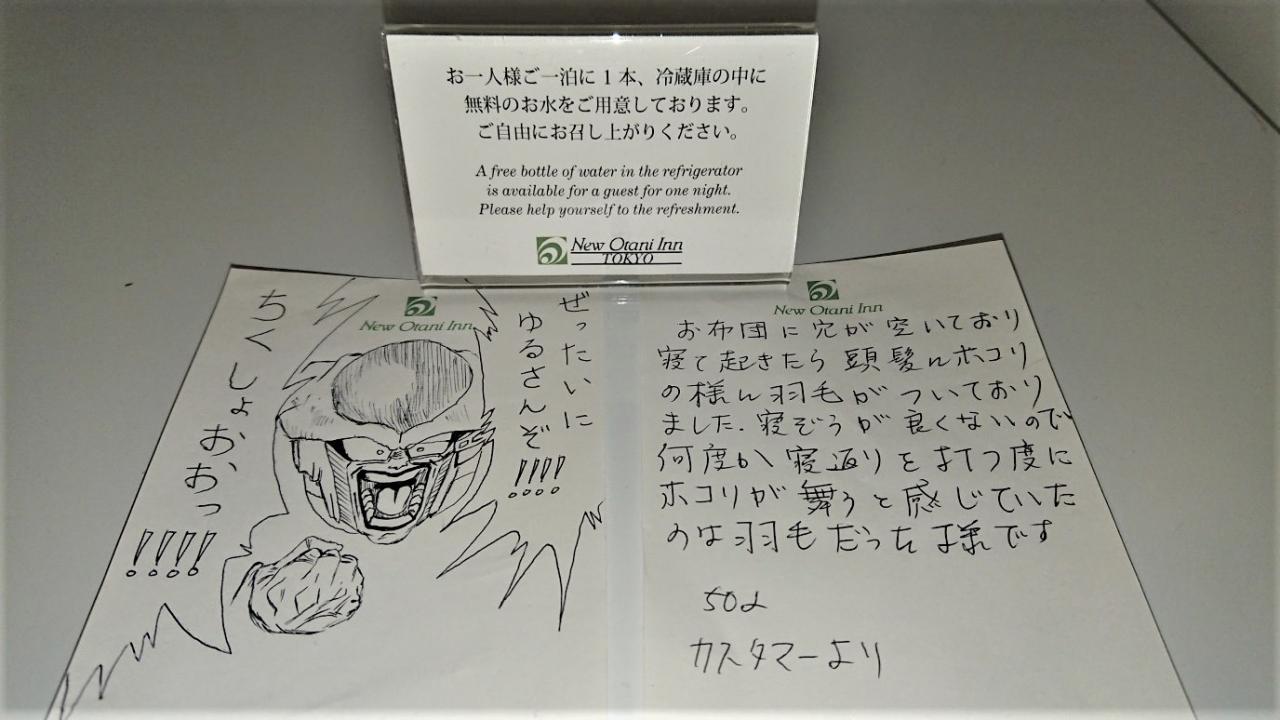 お一人様ご一泊に1本、冷蔵庫の中に
無料のお水をご用意しております。
ご自由にお召し上がりください。
A free bottle of water in the refrigerator
is available for a guest for one night.
Please help yourself to the refreshment.
New Otani Inn
TOKYO
New Otani Inn
ぜったいに
ゆるさんぞ
!!!!
ちくしょおおっ
!!!!
New Otani Inn
お布団に穴が空いており
寝て起きたら頭髪にホコリ
の様に羽毛がついており
ました.寝ぞうが良くないので
何度か寝返りを打つ度に
ホコリが舞うと感じていた
のは羽毛だった様です
カスタマーより